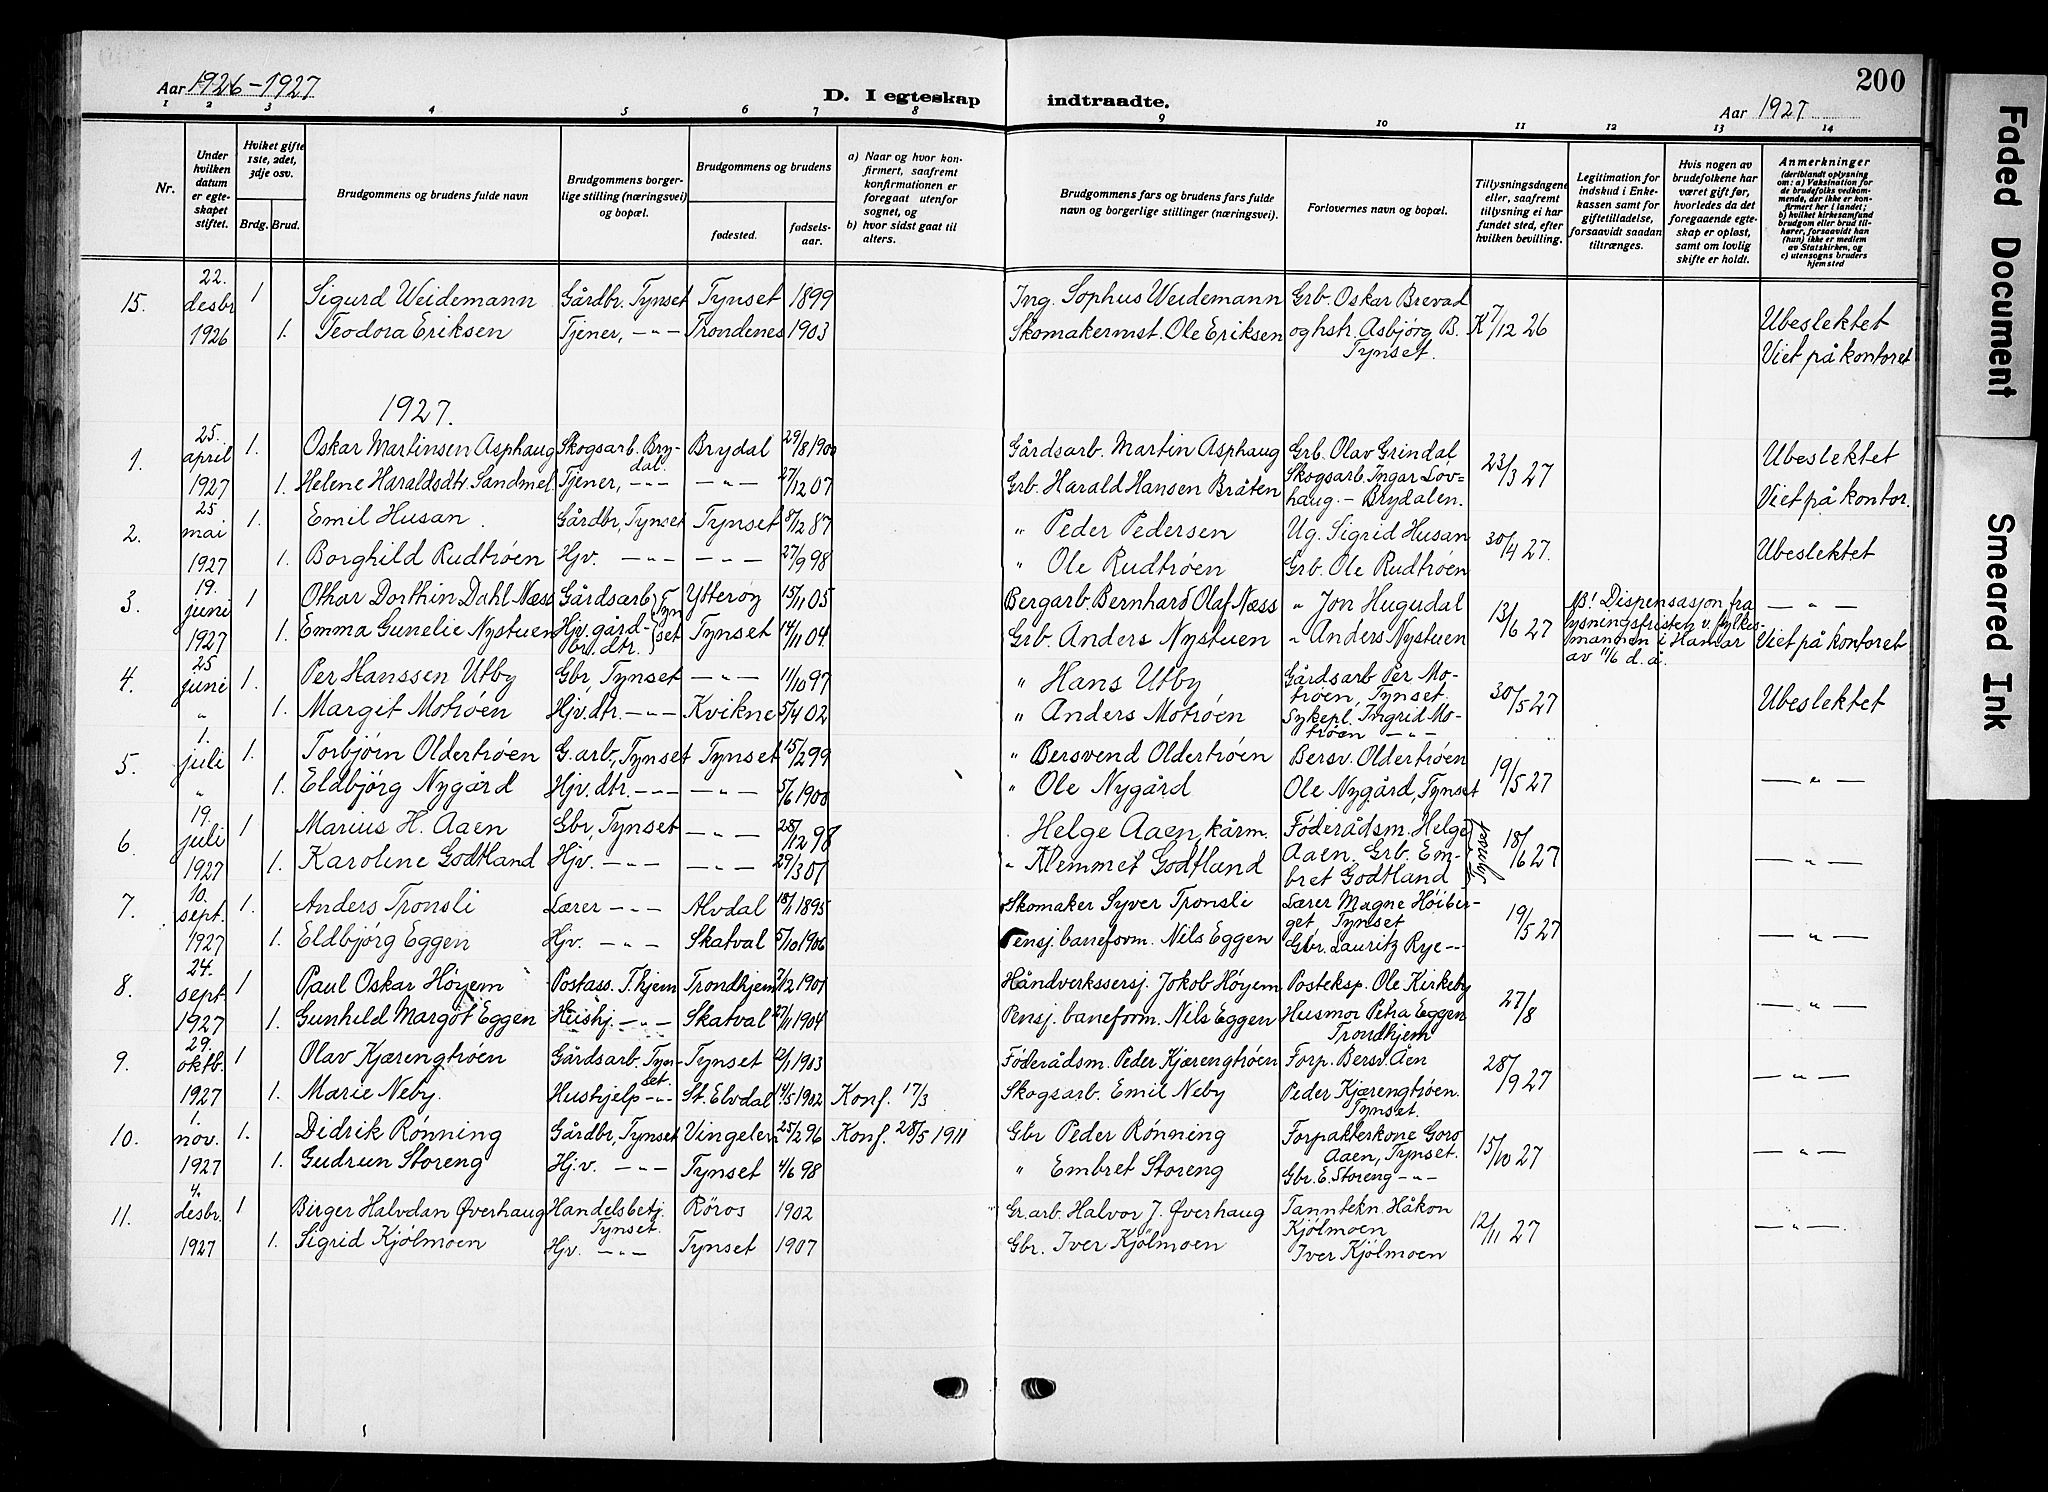 200
Aar 1926-1927
D. I egteskap indtraadte.
Aar 1927
1 2 3 4 5 6 7 8 9 10 11 12 13 14
Nr.
Under hvilken datum er egteskapet stiftet.
Hvilket gifte 1ste, 2det, 3dje osv.
Brdg. Brud.
Brudgommens og brudens fulde navn
Brudgommens borgerlige stilling (næringsvei) og bopæl.
Brudgommens og brudens
fødested.
fødselsaar.
a) Naar og hvor konfirmert, saafremt konfirmationen er foregaat utenfor sognet, og
b) hvor sidst gaat til alters.
Brudgommens fars og brudens fars fulde navn og borgerlige stillinger (næringsvei).
Forlovernes navn og bopæl.
Tillysningsdagene eller, saafremt tillysning ei har fundet sted, efter hvilken bevilling.
Legitimation for indskud i Enkekassen samt for giftetilladelse, forsaavidt saadan tiltrænges.
Hvis nogen av brudefolkene har været gift før, hvorledes da det foregaaende egteskap er opløst, samt om lovlig skifte er holdt.
Anmerkninger (deriblandt oplysning om: a) Vaksination for de brudefolks vedkommende, der ikke er konfirmert her i landet; b) hvilket kirkesamfund brudgom eller brud tilhører, forsaavidt han (hun) ikke er medlem av Statskirken, og c) utensogns bruders hjemsted
15. 22. desbr 1926 1 Sigurd Weidemann Gårdbr. Tynset Tynset 1899 Ing. Sophus Weidemann Grb. Oskar Brevad
1. Teodora Eriksen Tjener, -"- Trondenes 1903 Skomakermst. Ole Eriksen og hstr. Asbjørg B. Tynset. K 7/12 26 Ubeslektet Viet på kontoret
1927.
1. 25. april 1927 1. Oskar Martinsen Asphaug Skogsarb. Brydal Brydal 29/8 1900 Gårdsarb. Martin Asphaug Grb. Olav Grindal
1. Helene Haraldsdtr. Sandmel Tjener, -"- -"- 27/12 07 Grb. Harald Hansen Bråten Skogsarb. Ingar Løvhaug - Brydalen. 23/3 27 Ubeslektet Viet på kontor.
2. 25 mai 1927 1. Emil Husan Gårdbr, Tynset Tynset 8/12 87 " Peder Pedersen Ug. Sigrid Husan
1. Borghild Rudtrøen Hjv. -"- -"- 27/9 98 " Ole Rudtrøen Grb. Ole Rudtrøen 30/4 27. Ubeslektet
3. 19. juni 1927 1 Othar Dorthin Dahl Næss Gårdsarb Tynset Ytterøy 15/11 05 Bergarb. Bernhard Olaf Næss " Jon Hugudal
1. Emma Gunelie Nystuen Hjv. gårdbr. dtr. Tynset 14/11 04 Grb. Anders Nystuen " Anders Nystuen 13/6 27 NB! Dispensasjon fra lysningsfristen v. fylkesmannen i Hamar av 11/6 d. å. -"- Viet på kontoret
4. 25 juni " 1. Per Hanssen Utby Gbr, Tynset -"- 11/10 97 " Hans Utby Gårdsarb Per Motrøen, Tynset.
1. Margit Motrøen Hjv. dtr. -"- Kvikne 5/4 02 " Anders Motrøen Sykepl. Ingrid Motrøen -"- 30/5 27 Ubeslektet
5. 1. juli " 1. Torbjørn Oldertrøen G. arb., Tynset Tynset 15/2 99 " Bersvend Oldertrøen Bersv. Oldertrøen
1. Eldbjørg Nygård Hjv. dtr. -"- -"- 5/6 1900 " Ole Nygård Ole Nygård, Tynset 19/5 27 -"-
6. 19. juli 1927 1 Marius H. Aaen Gbr, Tynset -"- 28/12 98 Helge Aaen, kårm. Föderådsm. Helge Aaen. Grb. Embret Godtland Tynset
1. Karolene Godtland Hjv. -"- -"- 29/3 07 " Klemmet Godtland 18/6 27 -"-
7. 10. sept. 1927 1. Anders Tronsli Lærer -"- Alvdal 18/1 1895 Skomaker Syver Tronsli Lærer Magne Höiberget, Tynset
1. Eldbjörg Eggen Hjv. -"- Skatval 5/10 1906 Pensj. baneform. Nils Eggen Gbr. Lauritz Rye -"- 19/5 27 -"-
8. 24. sept. 1927 1 Paul Oskar Höyem Postass. T.hjem Trondhjem 7/2 1901 Håndverkssersj. Jokob Höyem Posteksp. Ole Kirkeby
1. Gunhild Margot Eggen Hushj. -"- Skatval 27/11 1904 Pensj. baneform. Nils Eggen Husmor Petra Eggen Trondhjem 27/8 -"-
9. 29. oktb. 1927 1 Olav Kjærengtröen Gårdsarb. Tynset. Tynset 2/1 1903 Föderådsm. Peder Kjærengtröen Forp. Bersv. Åen
1. Marie Neby. Hushjelp -"- St. Elvdal 14/5 1902 Konf. 17/3 Skogsarb. Emil Neby Peder Kjærengtröen. Tynset. 28/9 27 -"-
10. 1. nov. 1927 1. Didrik Rönning Gårdbr, Tynset Vingelen 25/2 96 Konf. 28/5 1911 Gbr Peder Rönning Forpakterkone Goro Aaen, Tynset.
1. Gudrun Storeng Hjv. -"- Tynset 4/6 98 " Embret Storeng Gbr. E. Storeng -"- 15/10 27 -"-
11. 4. desbr. 1927 1 Birger Halvdan Øverhaug Handelsbetj. Tynset. Röros 1902 Gr. arb. Halvor J. Øverhaug Tanntekn. Håkon Kjölmoen
1. Sigrid Kjölmoen Hjv. -"- Tynset 1907 Gbr. Iver Kjölmoen Iver Kjölmoen 12/11 27 -"-
Faded Document
Smeared Ink